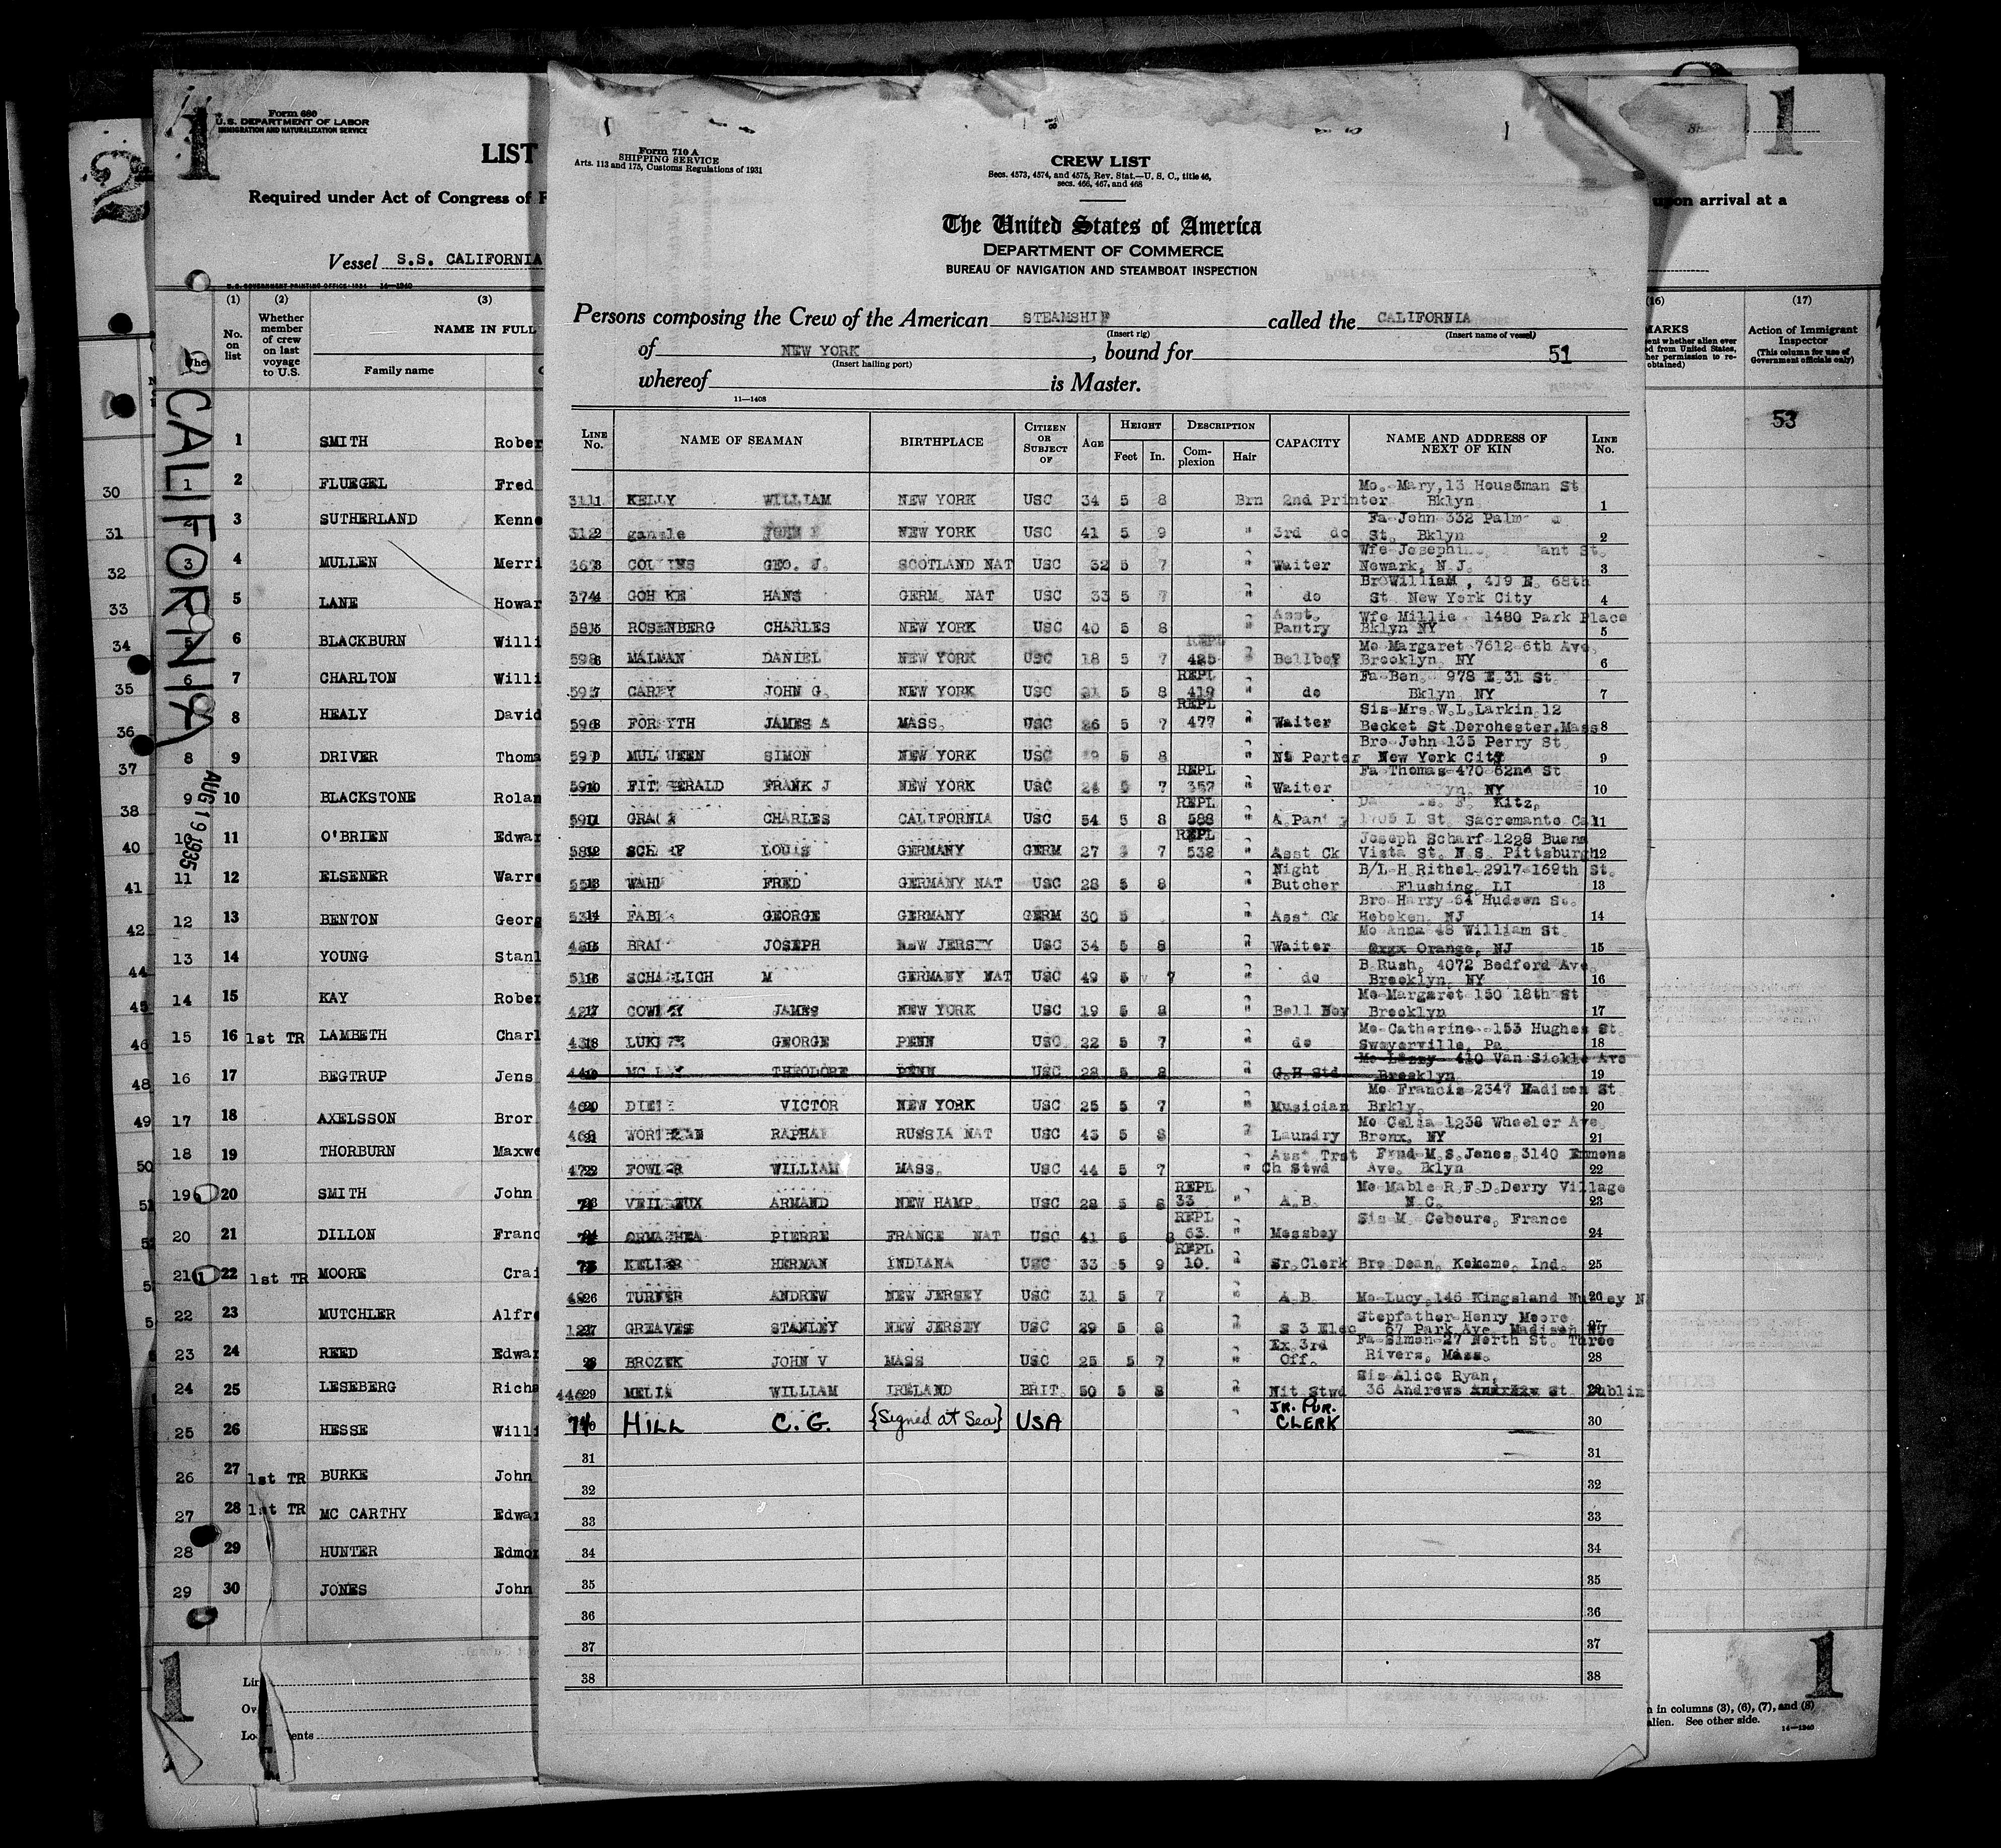 2
1
Form 680
U.S. DEPARTMENT OF LABOR
IMMIGRATION AND NATURALIZATION SERVICE
LIST
Required under Act of Congress of F
Vessel S.S. CALIFORNIA
U.S. GOVERNMENT PRINTING OFFICE: 1934 14—1240
(1) (2) (3)
No. on list
Whether member of crew on last voyage to U.S.
NAME IN FULL
Family name
CALIFORNIA
AUG 19 1935
1 SMITH Rober
2 FLUEGEL Fred
3 SUTHERLAND Kenne
4 MULLEN Merri
5 LANE Howar
6 BLACKBURN Willi
7 CHARLTON Willi
8 HEALY David
9 DRIVER Thoma
10 BLACKSTONE Rolan
11 O'BRIEN Edwar
12 ELSENER Warre
13 BENTON Georg
14 YOUNG Stanl
15 KAY Rober
16 1st TR LAMBETH Charl
17 BEGTRUP Jens
18 AXELSSON Bror
19 THORBURN Maxwe
20 SMITH John
21 DILLON Franc
22 1st TR MOORE Crai
23 MUTCHLER Alfre
24 REED Edwar
25 LESEBERG Richa
26 HESSE Willi
27 1st TR BURKE John
28 1st TR MC CARTHY Edwar
29 HUNTER Edmon
30 JONES John
1
Form 710 A
SHIPPING SERVICE
Arts. 113 and 175, Customs Regulations of 1931
CREW LIST
Secs. 4573, 4574, and 4575, Rev. Stat.—U. S. C., title 46,
secs. 466, 467, and 468
The United States of America
DEPARTMENT OF COMMERCE
BUREAU OF NAVIGATION AND STEAMBOAT INSPECTION
Persons composing the Crew of the American STEAMSHIP called the CALIFORNIA
(Insert rig) (Insert name of vessel)
of NEW YORK, bound for 51
(Insert hailing port)
whereof is Master.
11—1408
LINE No. NAME OF SEAMAN BIRTHPLACE CITIZEN OR SUBJECT OF AGE HEIGHT Feet In. DESCRIPTION Complexion Hair CAPACITY NAME AND ADDRESS OF NEXT OF KIN LINE No.
1 KELLY WILLIAM NEW YORK USC 34 5 8 Brn 2nd Printer Mo. Mary, 13 Houseman St Bklyn 1
2 JOHN NEW YORK USC 41 5 9 " 3rd do Fa John 332 St. Bklyn 2
3 COLLINS GEO. J. SCOTLAND NAT USC 32 5 7 " Waiter Wfe Josephine St. Newark, N.J. 3
4 HANS GERM. NAT USC 33 5 7 " do Bro William, 419 E. 68th St. New York City 4
5 ROSENBERG CHARLES NEW YORK USC 40 5 8 " Asst. Pantry Wfe Millie 1480 Park Place Bklyn NY 5
6 MALMAN DANIEL NEW YORK USC 18 5 7 REPL 425 " Bellboy Mo Margaret 7612-6th Ave. Brooklyn, NY 6
7 CAREY JOHN G. NEW YORK USC 21 5 8 REPL 419 " do Fa Ben. 978 E 31 St. Bklyn NY 7
8 FORSYTH JAMES A MASS. USC 26 5 7 REPL 477 " Waiter Sis-Mrs. W.L.Larkin 12 Becket St Dorchester.Mass 8
9 MULQUEEN SIMON NEW YORK USC 5 8 " Nt Porter Bro John-135 Perry St. New York City 9
10 FITZGERALD FRANK J NEW YORK USC 24 5 7 REPL 357 " Waiter Fa Thomas-470 62nd St NY 10
11 CHARLES CALIFORNIA USC 54 5 8 REPL 588 " Kitz, 1705 L St. Sacramento Cal 11
12 SCHARF LOUIS GERMANY GERM 27 7 REPL 538 " Asst Ck Joseph Scharf-1228 Buena Vista St. N.S. Pittsburgh 12
13 WAHL FRED GERMANY NAT USC 28 5 8 " Night Butcher B/L H Rithel-2917-169th St. Flushing, LI 13
14 GEORGE GERMANY GERM 30 5 " Asst Ck Bro Harry-54 Hudson St. Hoboken, NJ 14
15 JOSEPH NEW JERSEY USC 34 5 8 " Waiter Mo Anna 48 William St. Orange, NJ 15
16 M GERMANY NAT USC 49 5 7 " do B Rush, 4072 Bedford Ave. Brooklyn, NY 16
17 COWLEY JAMES NEW YORK USC 19 5 8 " Bell Boy Mo Margaret 150 18th St Brooklyn 17
18 GEORGE PENN USC. 22 5 7 " do Mo Catherine 153 Hughes St. Swoyerville, Pa. 18
19 THEODORE PENN USC 28 5 8 G.H Std 410 Van Sickle Ave Brooklyn 19
20 VICTOR NEW YORK USC 25 5 7 " Musician Mo Francis 2347 Madison St Brkly. 20
21 WORTHMAN RUSSIA NAT USC 43 5 8 " Laundry Mo Celia 1238 Wheeler Ave. Bronx, NY 21
22 FOWLER WILLIAM MASS. USC 44 5 7 " Asst Trst Ch Stwd Frnd M.S.Jones, 3140 Emmons Ave. Bklyn 22
23 VEILLEUX ARMAND NEW HAMP. USC 28 5 8 REPL 33 " A.B. Mo Mable R.F.D.Derry Village N.C. 23
24 ORMACHEA PIERRE FRANCE NAT USC 41 5 8 REPL 63. " Messboy Sis M. Ceboure, France 24
25 KELLER HERMAN INDIANA USC 33 5 9 REPL 10. " Sr.Clerk Bro Dean, Kokomo, Ind. 25
26 TURNER ANDREW NEW JERSEY USC 31 5 7 " A.B. Mo Lucy, 146 Kingsland Nutley N 26
27 GREAVES STANLEY NEW JERSEY USC 29 5 8 " S 3 Elec Stepfather-Henry Moore 67 Park Ave. Madison NJ 27
28 BROZEK JOHN V MASS USC 25 5 7 " Ex 3rd Off. Fa Simon-27 North St. Three Rivers, Mass. 28
29 MELIA WILLIAM IRELAND BRIT. 50 5 8 " Nit Stwd Sis Alice Ryan, 36 Andrews St. Dublin 29
30 HILL C.G. {Signed at Sea} USA JR. PUR. CLERK 30
31 31
32 32
33 33
34 34
35 35
36 36
37 37
38 38
1
upon arrival at a
(16) (17)
Action of Immigrant Inspector
(This column for use of Government officials only)
53
1
in columns (3), (6), (7), and (8)
alien. See other side.
14—1240